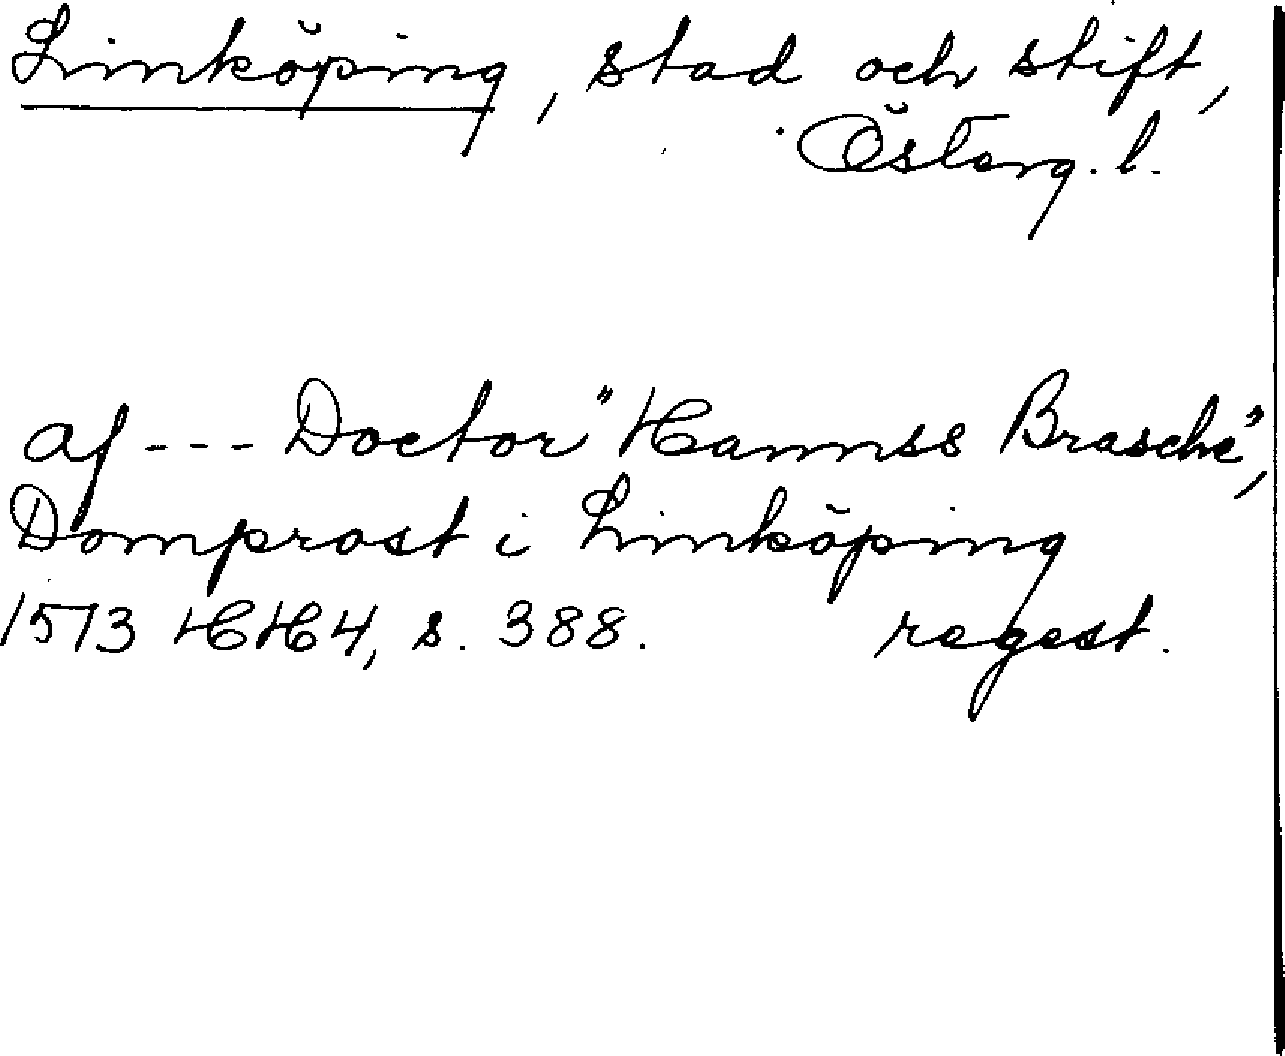 Linköping, stad och stift,
Österg. l.
af --- Doctor "Hannss Brasche",
Domprost i Linköping
1513 HH4, s. 388. regest.